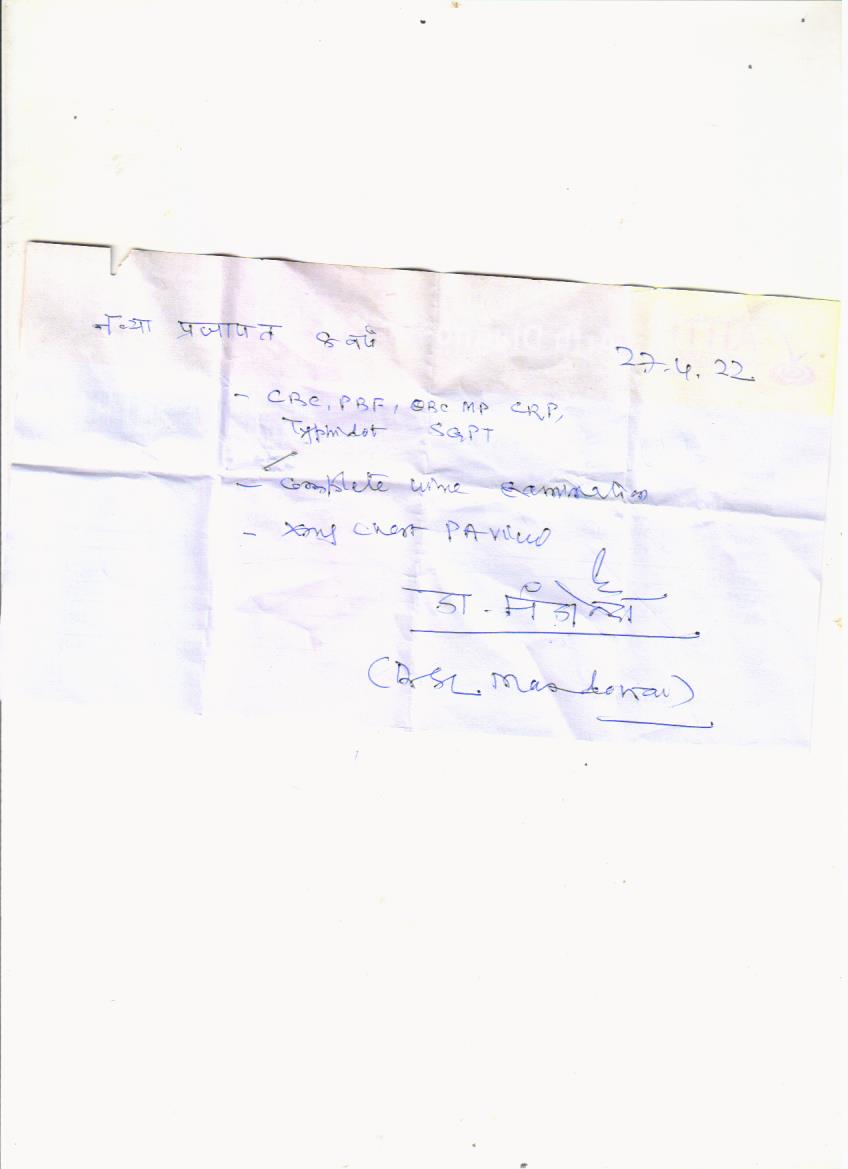 नव्या प्रजापत 8 वर्ष
27.4.22
- CBC, PBF, QBC MP CRP,
Typhidot SGPT
- Complete urine examination
- Xray Chest PA view
डा.